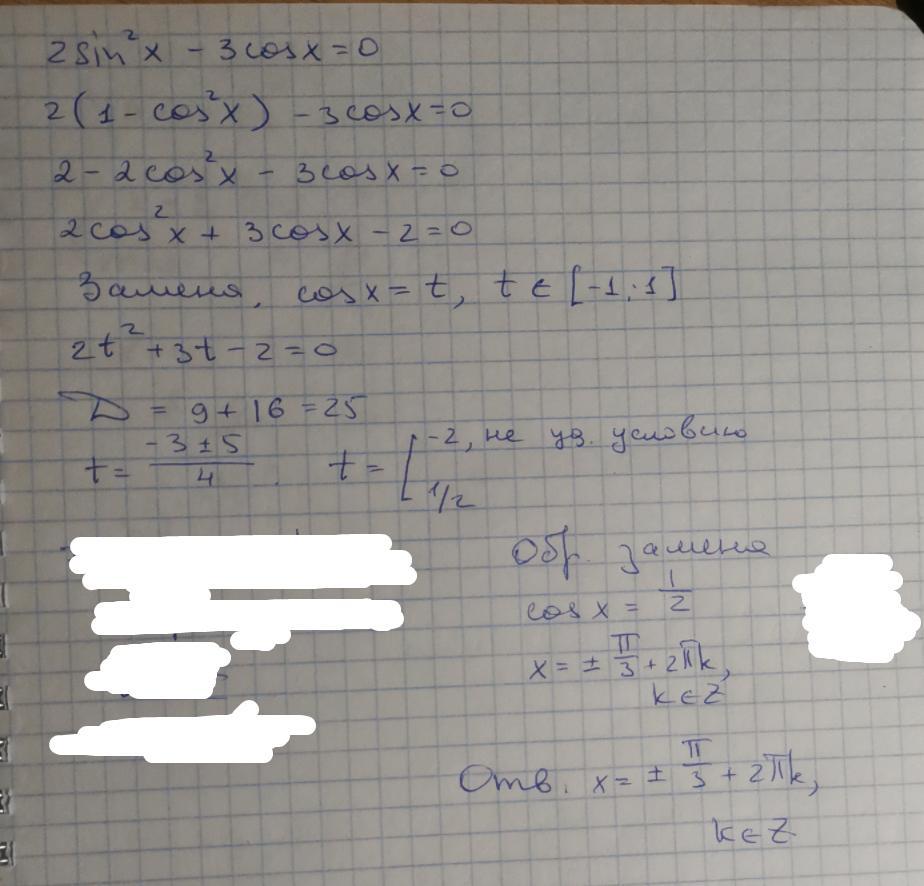 2sin²x - 3cosx = 0
2(1 - cos²x) - 3cosx = 0
2 - 2cos²x - 3cosx = 0
2cos²x + 3cosx - 2 = 0
Замена, cosx = t, t ∈ [-1;1]
2t² + 3t - 2 = 0
D = 9 + 16 = 25
t = (-3 ± 5)/4. t = [ -2, не уд. условию
1/2
Обр. замена
cosx = 1/2
x = ± π/3 + 2πk,
k ∈ Z
Отв. x = ± π/3 + 2πk,
k ∈ Z